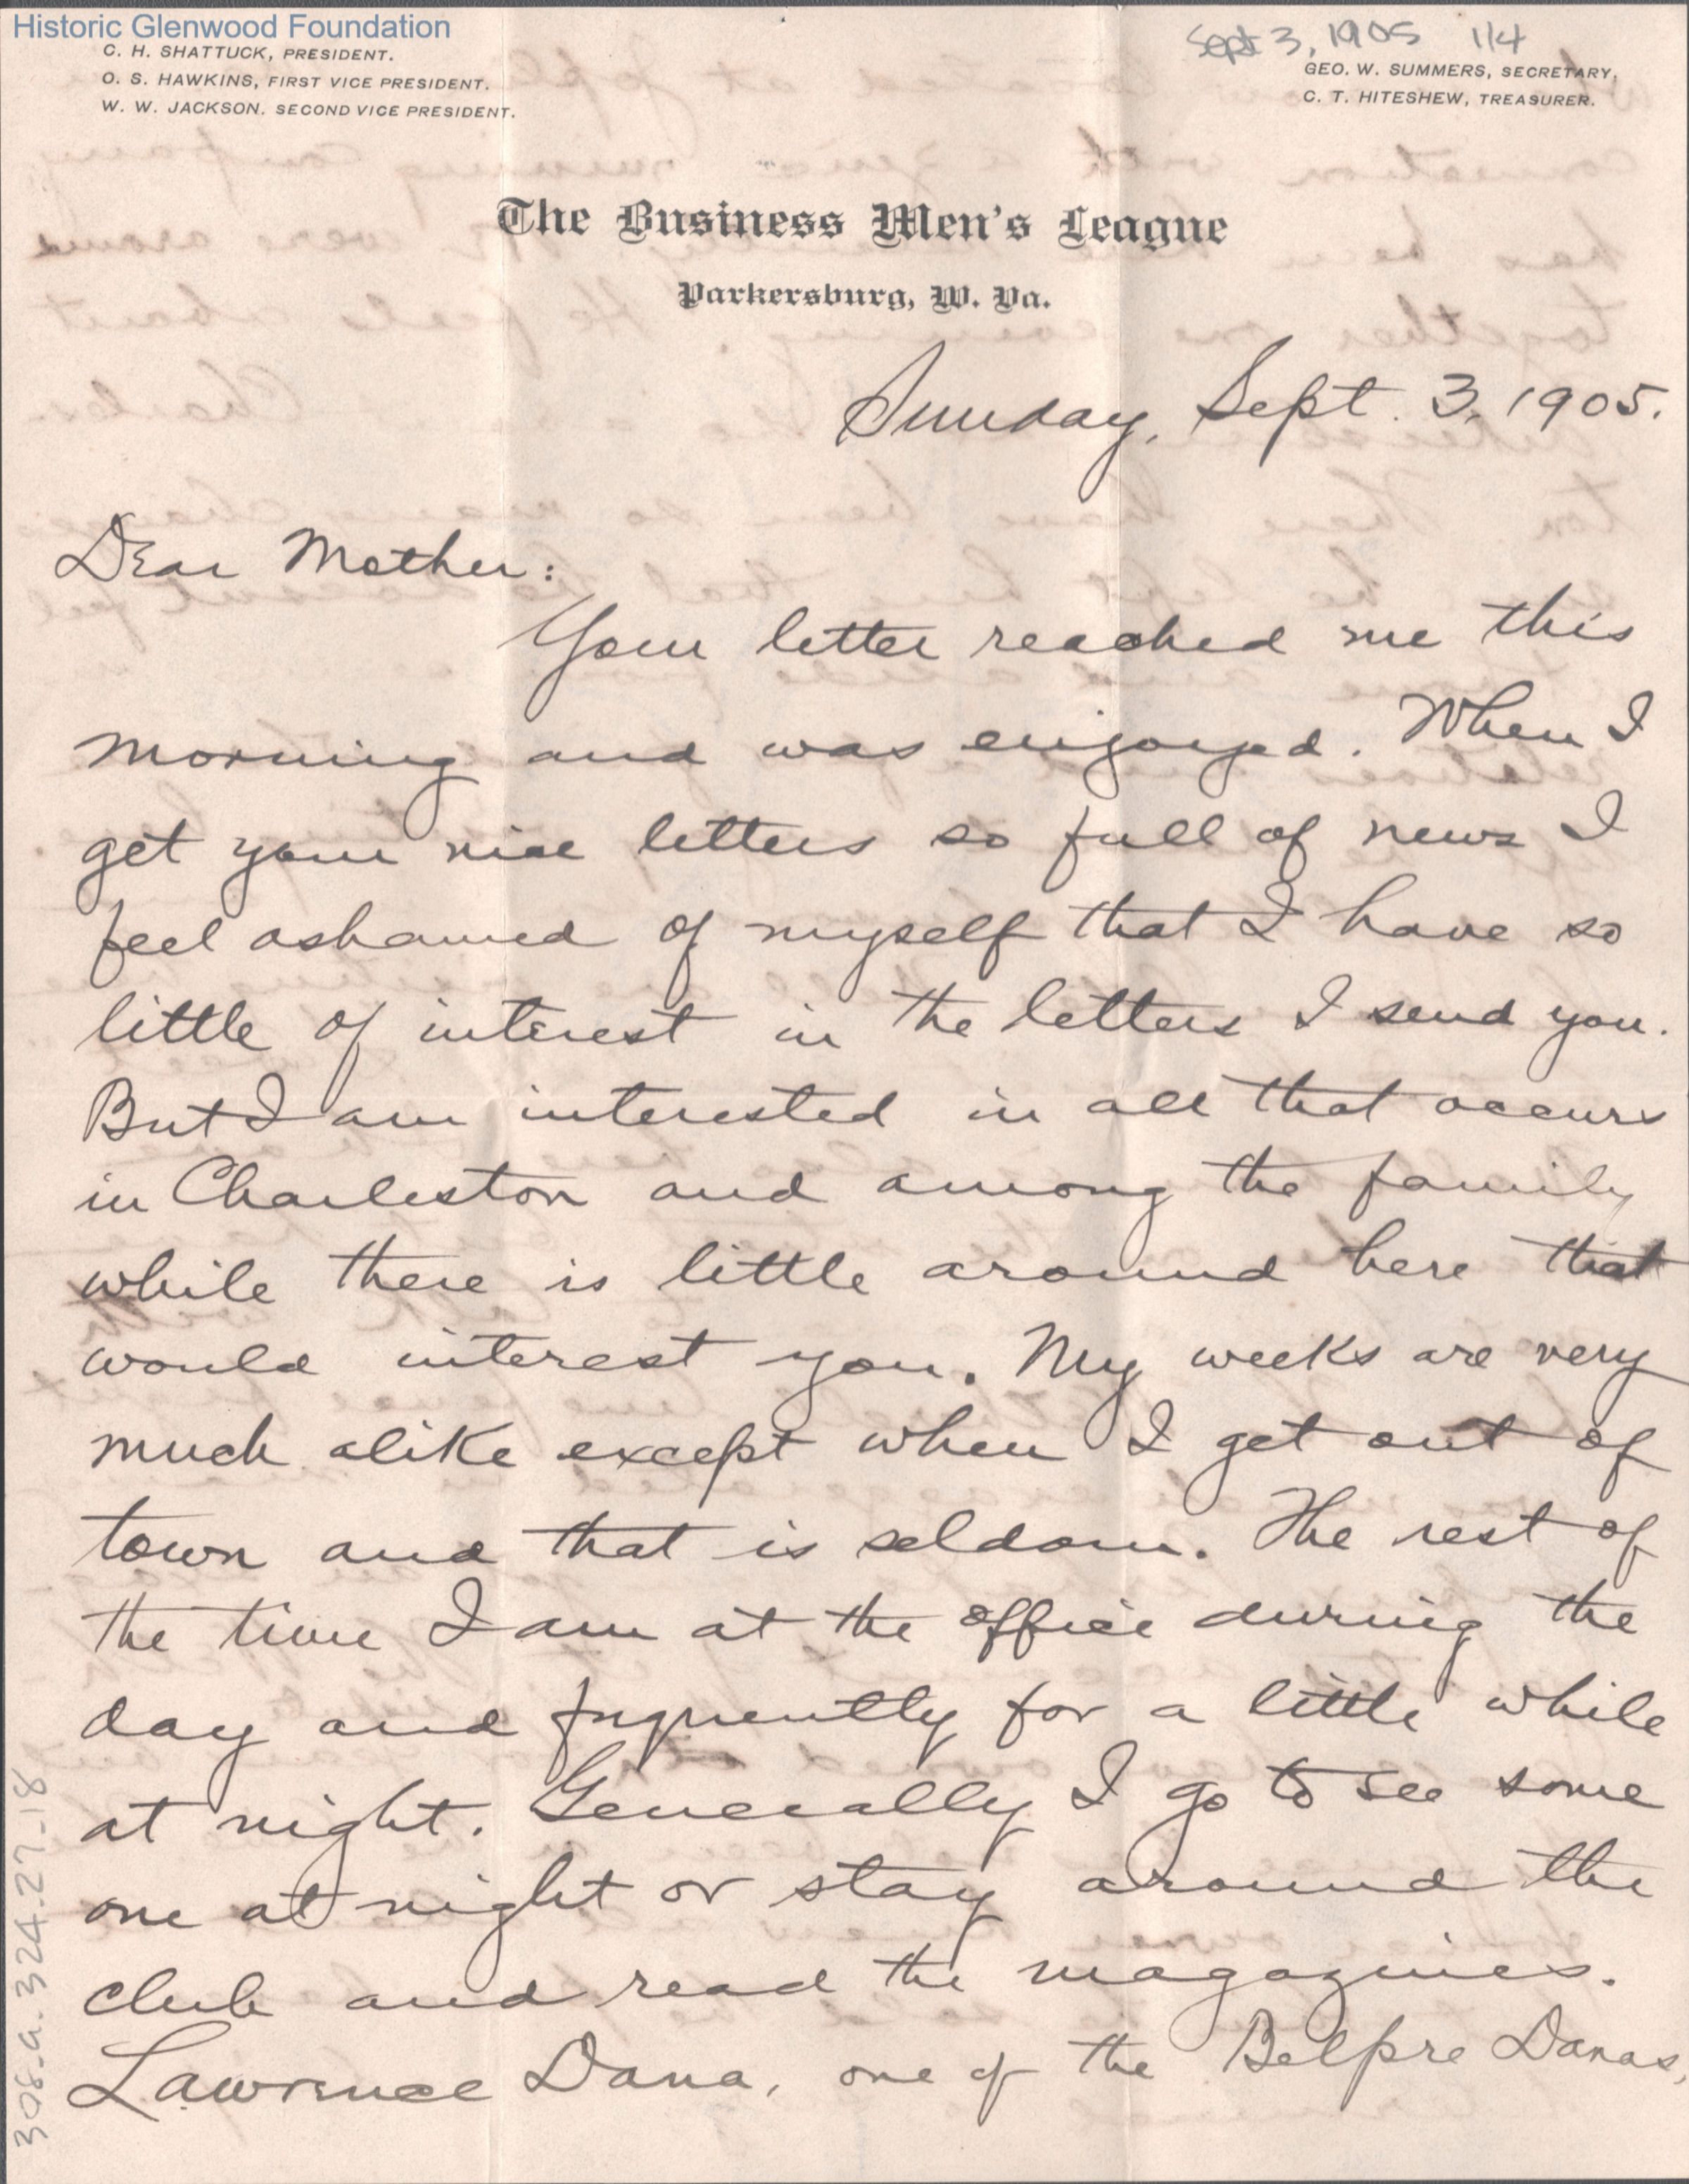 Historic Glenwood Foundation
C. H. SHATTUCK, PRESIDENT.
O. S. HAWKINS, FIRST VICE PRESIDENT.
W. W. JACKSON. SECOND VICE PRESIDENT.
Sept 3, 1905 1/4
GEO. W. SUMMERS, SECRETARY.
C. T. HITESHEW, TREASURER.
The Business Men's League
Parkersburg, W. Va.
Sunday, Sept. 3, 1905.
Dear Mother:
Your letter reached me this
morning and was enjoyed. When I
get your nice letters so full of news I
feel ashamed of myself that I have so
little of interest in the letters I send you.
But I am interested in all that occurs
in Charleston and among the family
while there is little around here that
would interest you. My weeks are very
much alike except when I get out of
town and that is seldom. The rest of
the time I am at the office during the
day and frquently for a little while
at night. Generally I go to see some
one at night or stay around the
club and read the magazines.
Lawrence Dana, one of the Belpre Danas,
308.a.324.27.18